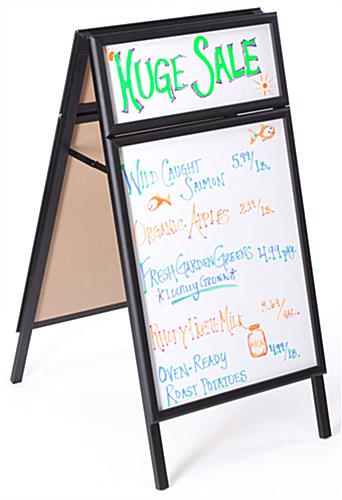 HUGE SALE
WILD CAUGHT 5.99/LB.
SALMON
ORGANIC APPLES 2.99/LB.
FRESH GARDEN GREENS 4.99 pkg.
*LOCALLY GROWN*
RHODY FRESH MILK 3.69/GAL.
MILK
OVEN-READY 4.99/LB.
ROAST POTATOES